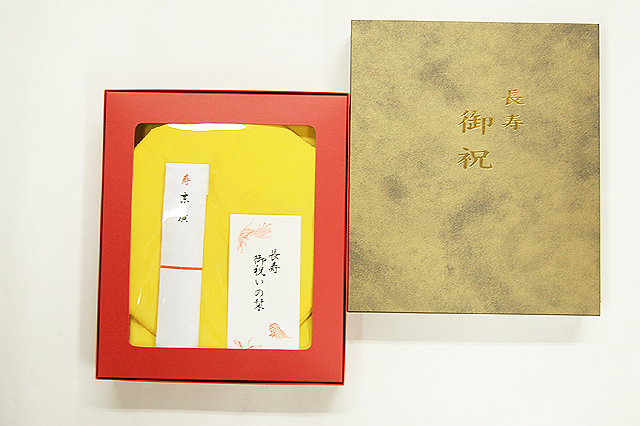 寿
末広
長寿
御祝いの栞
長寿
御祝